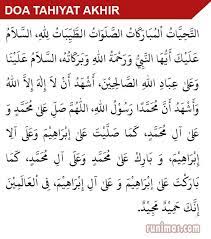 DOA TAHIYAT AKHIR
التَّحِيَّاتُ الْمُبَارَكَاتُ الصَّلَوَاتُ الطَّيِّبَاتُ لِلَّهِ، السَّلَامُ
عَلَيْكَ أَيُّهَا النَّبِيُّ وَرَحْمَةُ اللهِ وَبَرَكَاتُهُ، السَّلَامُ عَلَيْنَا
وَعَلَى عِبَادِ اللهِ الصَّالِحِيْنَ، أَشْهَدُ أَنْ لَا إِلَهَ إِلَّا اللهُ
وَأَشْهَدُ أَنَّ مُحَمَّدًا رَسُوْلُ اللهِ، اللهُمَّ صَلِّ عَلَى مُحَمَّدٍ وَ
عَلَى آلِ مُحَمَّدٍ، كَمَا صَلَّيْتَ عَلَى إِبْرَاهِيْمَ وَ عَلَى آلِ
إِبْرَاهِيْمَ، وَ بَارِكْ عَلَى مُحَمَّدٍ وَ عَلَى آلِ مُحَمَّدٍ، كَمَا
بَارَكْتَ عَلَى إِبْرَاهِيْمَ، وَ عَلَى آلِ إِبْرَاهِيْمَ، فِي الْعَالَمِيْنَ
إِنَّكَ حَمِيْدٌ مَجِيْدٌ.
runimas.com